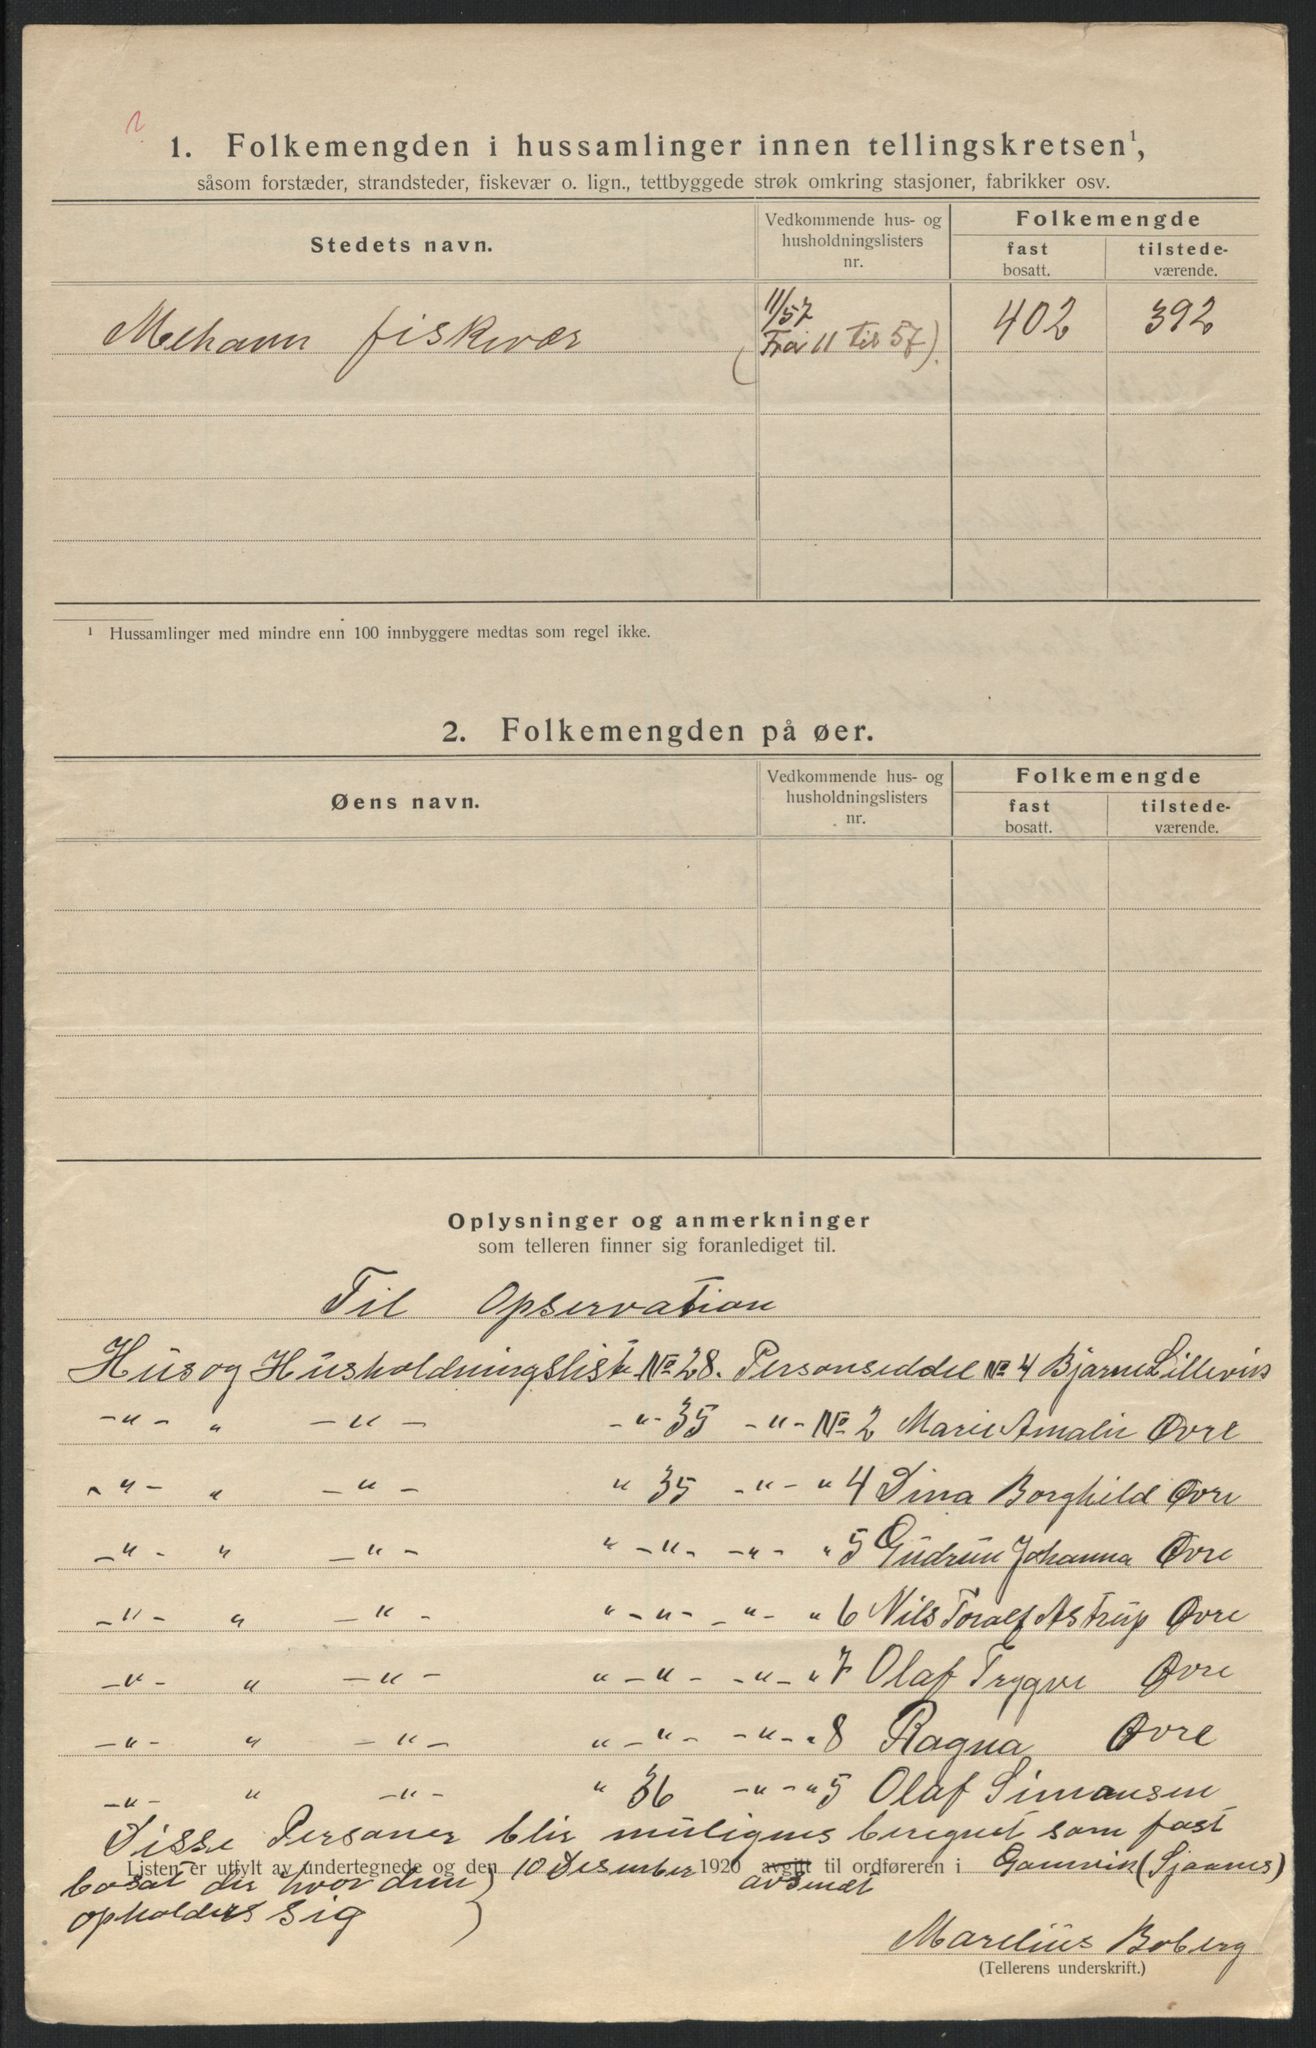 1. Folkemengden i hussamlinger innen tellingskretsen¹,
såsom forstæder, strandsteder, fiskevær o. lign., tettbyggede strøk omkring stasjoner, fabrikker osv.
Stedets navn.
Vedkommende hus- og husholdningslisters nr.
Folkemengde
fast bosatt.
tilstede-værende.
Mehavn fiskevær
11/57
(Fra 11 til 57).
402
392
¹ Hussamlinger med mindre enn 100 innbyggere medtas som regel ikke.
2. Folkemengden på øer.
Øens navn.
Vedkommende hus- og husholdningslisters nr.
Folkemengde
fast bosatt.
tilstede-værende.
Oplysninger og anmerkninger
som telleren finner sig foranlediget til.
Til Opservation
Hus og Husholdningsliste No 28. Personseddel No 4 Bjarne Lillevik
-"- " -"- -"- 35 -"- No 2 Marie Amalie Øvre
-"- " -"- " 35 -"- " 4 Dina Borghild Øvre
-"- " -"- " -"- -"- " 5 Gudrun Johanna Øvre
-"- " -"- " -"- -"- " 6 Nils Toralf Astrup Øvre
-"- " -"- " -"- -"- " 7 Olaf Trygve Øvre
-"- " -"- " -"- -"- " 8 Ragna Øvre
-"- " -"- " 36 -"- " 5 Olaf Simonsen
Disse Personer blir muligens beregnet som fast
bosat der hvor dem
opholders sig
Listen er utfylt av undertegnede og den 10 Desember 1920 avgitt avsendt til ordføreren i Gamvik (Sjaanes)
Marelius Boberg
(Tellerens underskrift.)